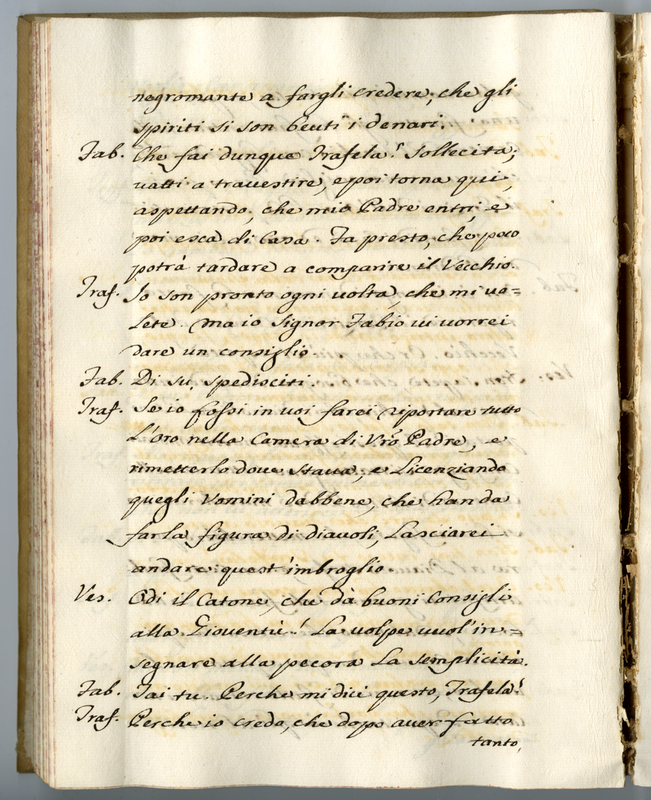 negromante a fargli credere, che gli
spiriti si son beuti i denari.
Fab. Che fai dunque Trafela? sollecita,
vatti a travestire, e poi torna qui,
aspettando, che mio Padre entri, e
poi esca di Casa. Fa presto, che poco
potrà tardare a comparire il Vecchio.
Traf. Io son pronto ogni volta, che mi vo=
lete. ma io Signor Fabio vi vorrei
dare un consiglio.
Fab. Di su, spedisciti.
Traf. Se io fossi in voi farei riportare tutto
l'oro nella Camera di Vr̃o Padre, e
rimetterlo dove stava, e Licenziando
quegli Uomini dabbene, che han da
far la figura di diavoli, Lasciarei
andare quest'imbroglio.
Ves. Odi il Catone, che dà buoni Consigli
alla Gioventù! La volpe vuol'in=
segnare alla pecora La semplicità.
Fab. Fai tu. Perche mi dici questo, Trafela?
Traf. Perche io credo, che dopo aver fatto
tanto,